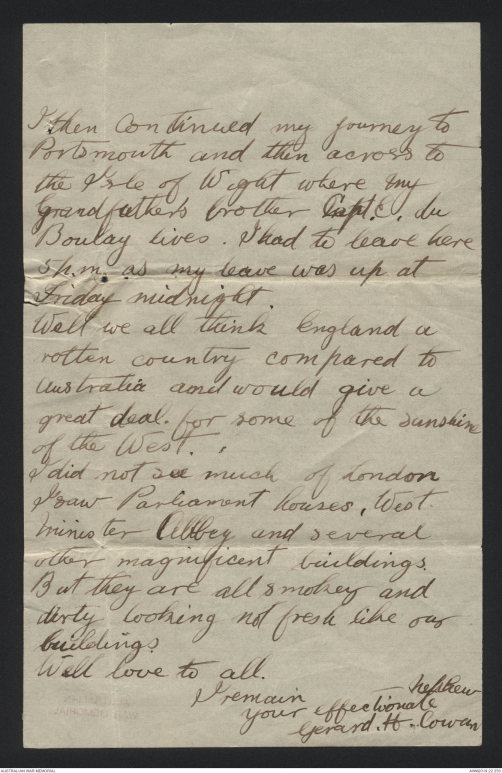 I then continued my journey to
Portsmouth and then across to
the Isle of Wight where my
Grandfather's brother Capt. C. du
Boulay lives. I had to leave here
5 p.m. as my leave was up at
Friday midnight.
Well we all think England a
rotten country compared to
Australia and would give a
great deal for some of the sunshine
of the West.
I did not see much of London
I saw Parliament houses, West-
minister Abbey and several
other magnificent buildings.
But they are all smokey and
dirty looking not fresh like our
buildings
Well love to all.
I remain
your effectionate nephew
Gerard. H. Cowan
AUSTRALIAN WAR MEMORIAL